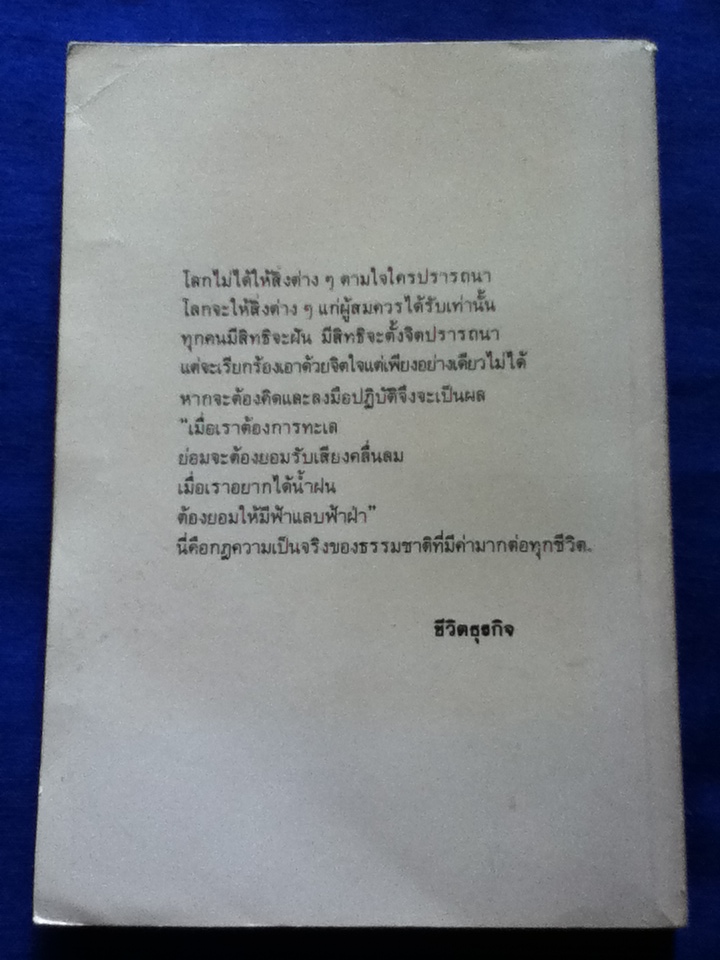 โลกไม่ได้ให้สิ่งต่าง ๆ ตามใจใครปรารถนา
โลกจะให้สิ่งต่าง ๆ แก่ผู้สมควรได้รับเท่านั้น
ทุกคนมีสิทธิจะฝัน มีสิทธิจะตั้งจิตปรารถนา
แต่จะเรียกร้องเอาด้วยจิตใจแต่เพียงอย่างเดียวไม่ได้
หากจะต้องคิดและลงมือปฏิบัติจึงจะเป็นผล
"เมื่อเราต้องการทะเล
ย่อมจะต้องยอมรับเสียงคลื่นลม
เมื่อเราอยากได้น้ำฝน
ต้องยอมให้มีฟ้าแลบฟ้าฝ่า"
นี่คือกฎความเป็นจริงของธรรมชาติที่มีค่ามากต่อทุกชีวิต.
ชีวิตธุรกิจ